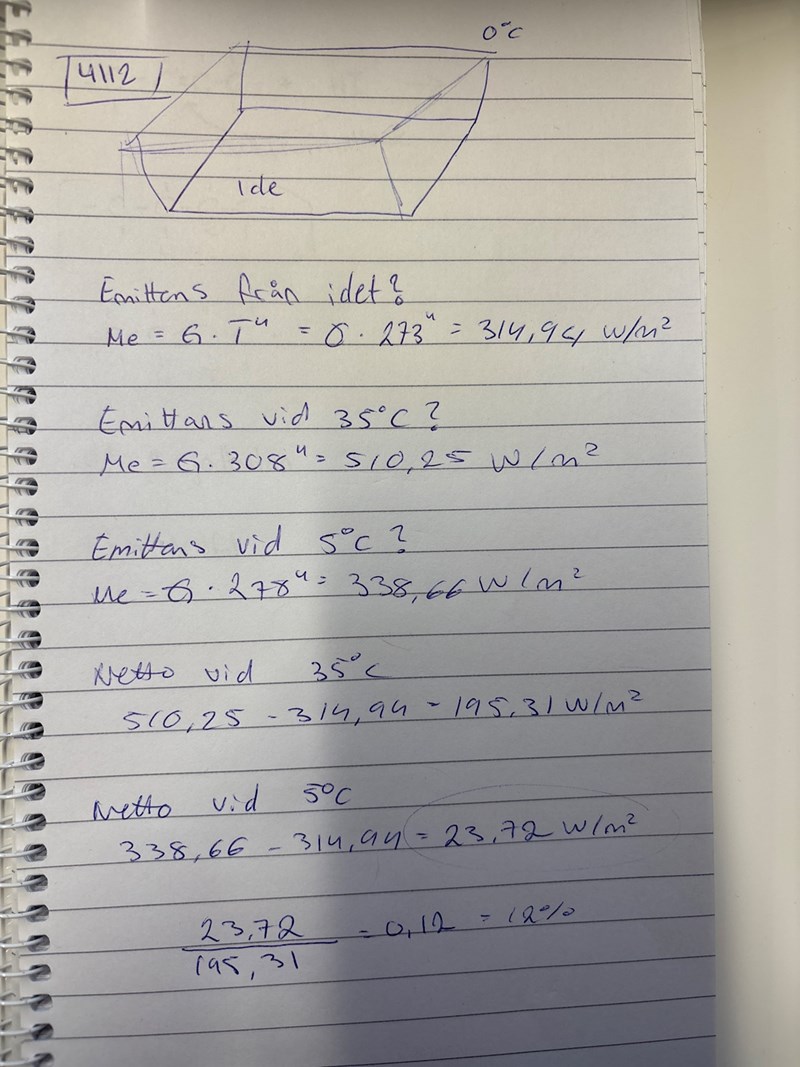 0°C
4112
Ide
Emittens från idet?
Me = σ · T⁴ = σ · 273⁴ = 314,94 W/m²
Emittans vid 35°C?
Me = σ · 308⁴ = 510,25 W/m²
Emittans vid 5°C?
Me = σ · 278⁴ = 338,66 W/m²
Netto vid 35°C
510,25 - 314,94 = 195,31 W/m²
Netto vid 5°C
338,66 - 314,94 = 23,72 W/m²
23,72
195,31
= 0,12 = 12%